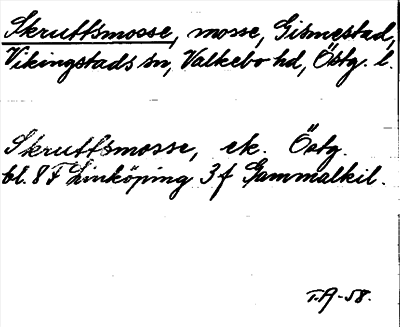 Skruttsmosse, mosse, Gismestad,
Vikingstads sn, Valkebo hd, Östg. l.
Skruttsmosse, ek. Östg.
bl. 8 F Linköping 3 f Gammalkil.
T.A-58.